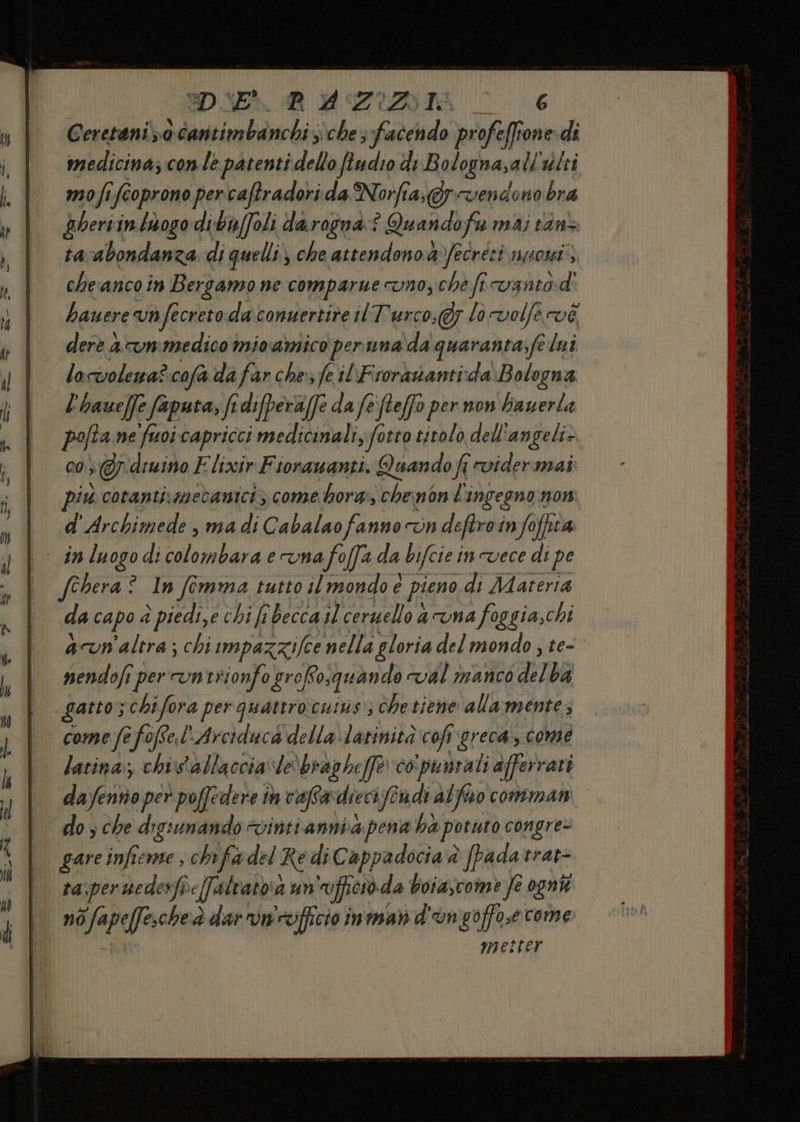 DE' PAZZI. 6
Ceretani, ò cantimbanchi, che, facendo professione di
medicina, con le patenti dello studio di Bologna, all'ulti
mo si scoprono per castradori da Norsia, & vendono bra
gheri in luogo di bussoli da rogna? Quando fu mai tan-
ta abondanza di quelli, che attendono à secreti nuoui,
che anco in Bergamo ne comparue vno, che si vantò d'
hauere vn secreto da conuertire il Turco, & lo volse vē
dere à vn medico mio amico per una da quaranta, se lui
lo voleua? cosa da far che, se il Fiorauanti da Bologna
l'hauesse saputa, si disperasse da se stesso per non hauerla
posta ne' suoi capricci medicinali, sotto titolo dell'angeli-
co, & diuino Elixir Fiorauanti. Quando si vider mai
più cotanti mecanici, come hora, che non l'ingegno non
d'Archimede, ma di Cabalao fanno vn destro in soffita
in luogo di colombara e vna fossa da biscie in vece di pe
schera? In somma tutto il mondo è pieno di Materia
da capo à piedi, e chi si becca il ceruello à vna foggia, chi
à vn'altra; chi impazzisce nella gloria del mondo, te-
nendosi per vn trionfo grosso, quando val manco del ba
gatto; chi fora per quattro cuius, che tiene alla mente,
come se fosse l'Arciduca della latinità cosi greca, come
latina; chi s'allaccia le braghesse co' puntali afferrati
da senno per possedere in cassa dieci scudi al suo comman
do, che digiunando vinti anni à pena ha potuto congre-
gare insieme, chi fa del Re di Cappadocia à spada trat-
ta, per uedersi essaltato à un'vfficio da boia, come se ogniū
nō sapesse, che à dar vn'vfficio in man d'vn goffo, e come
metter